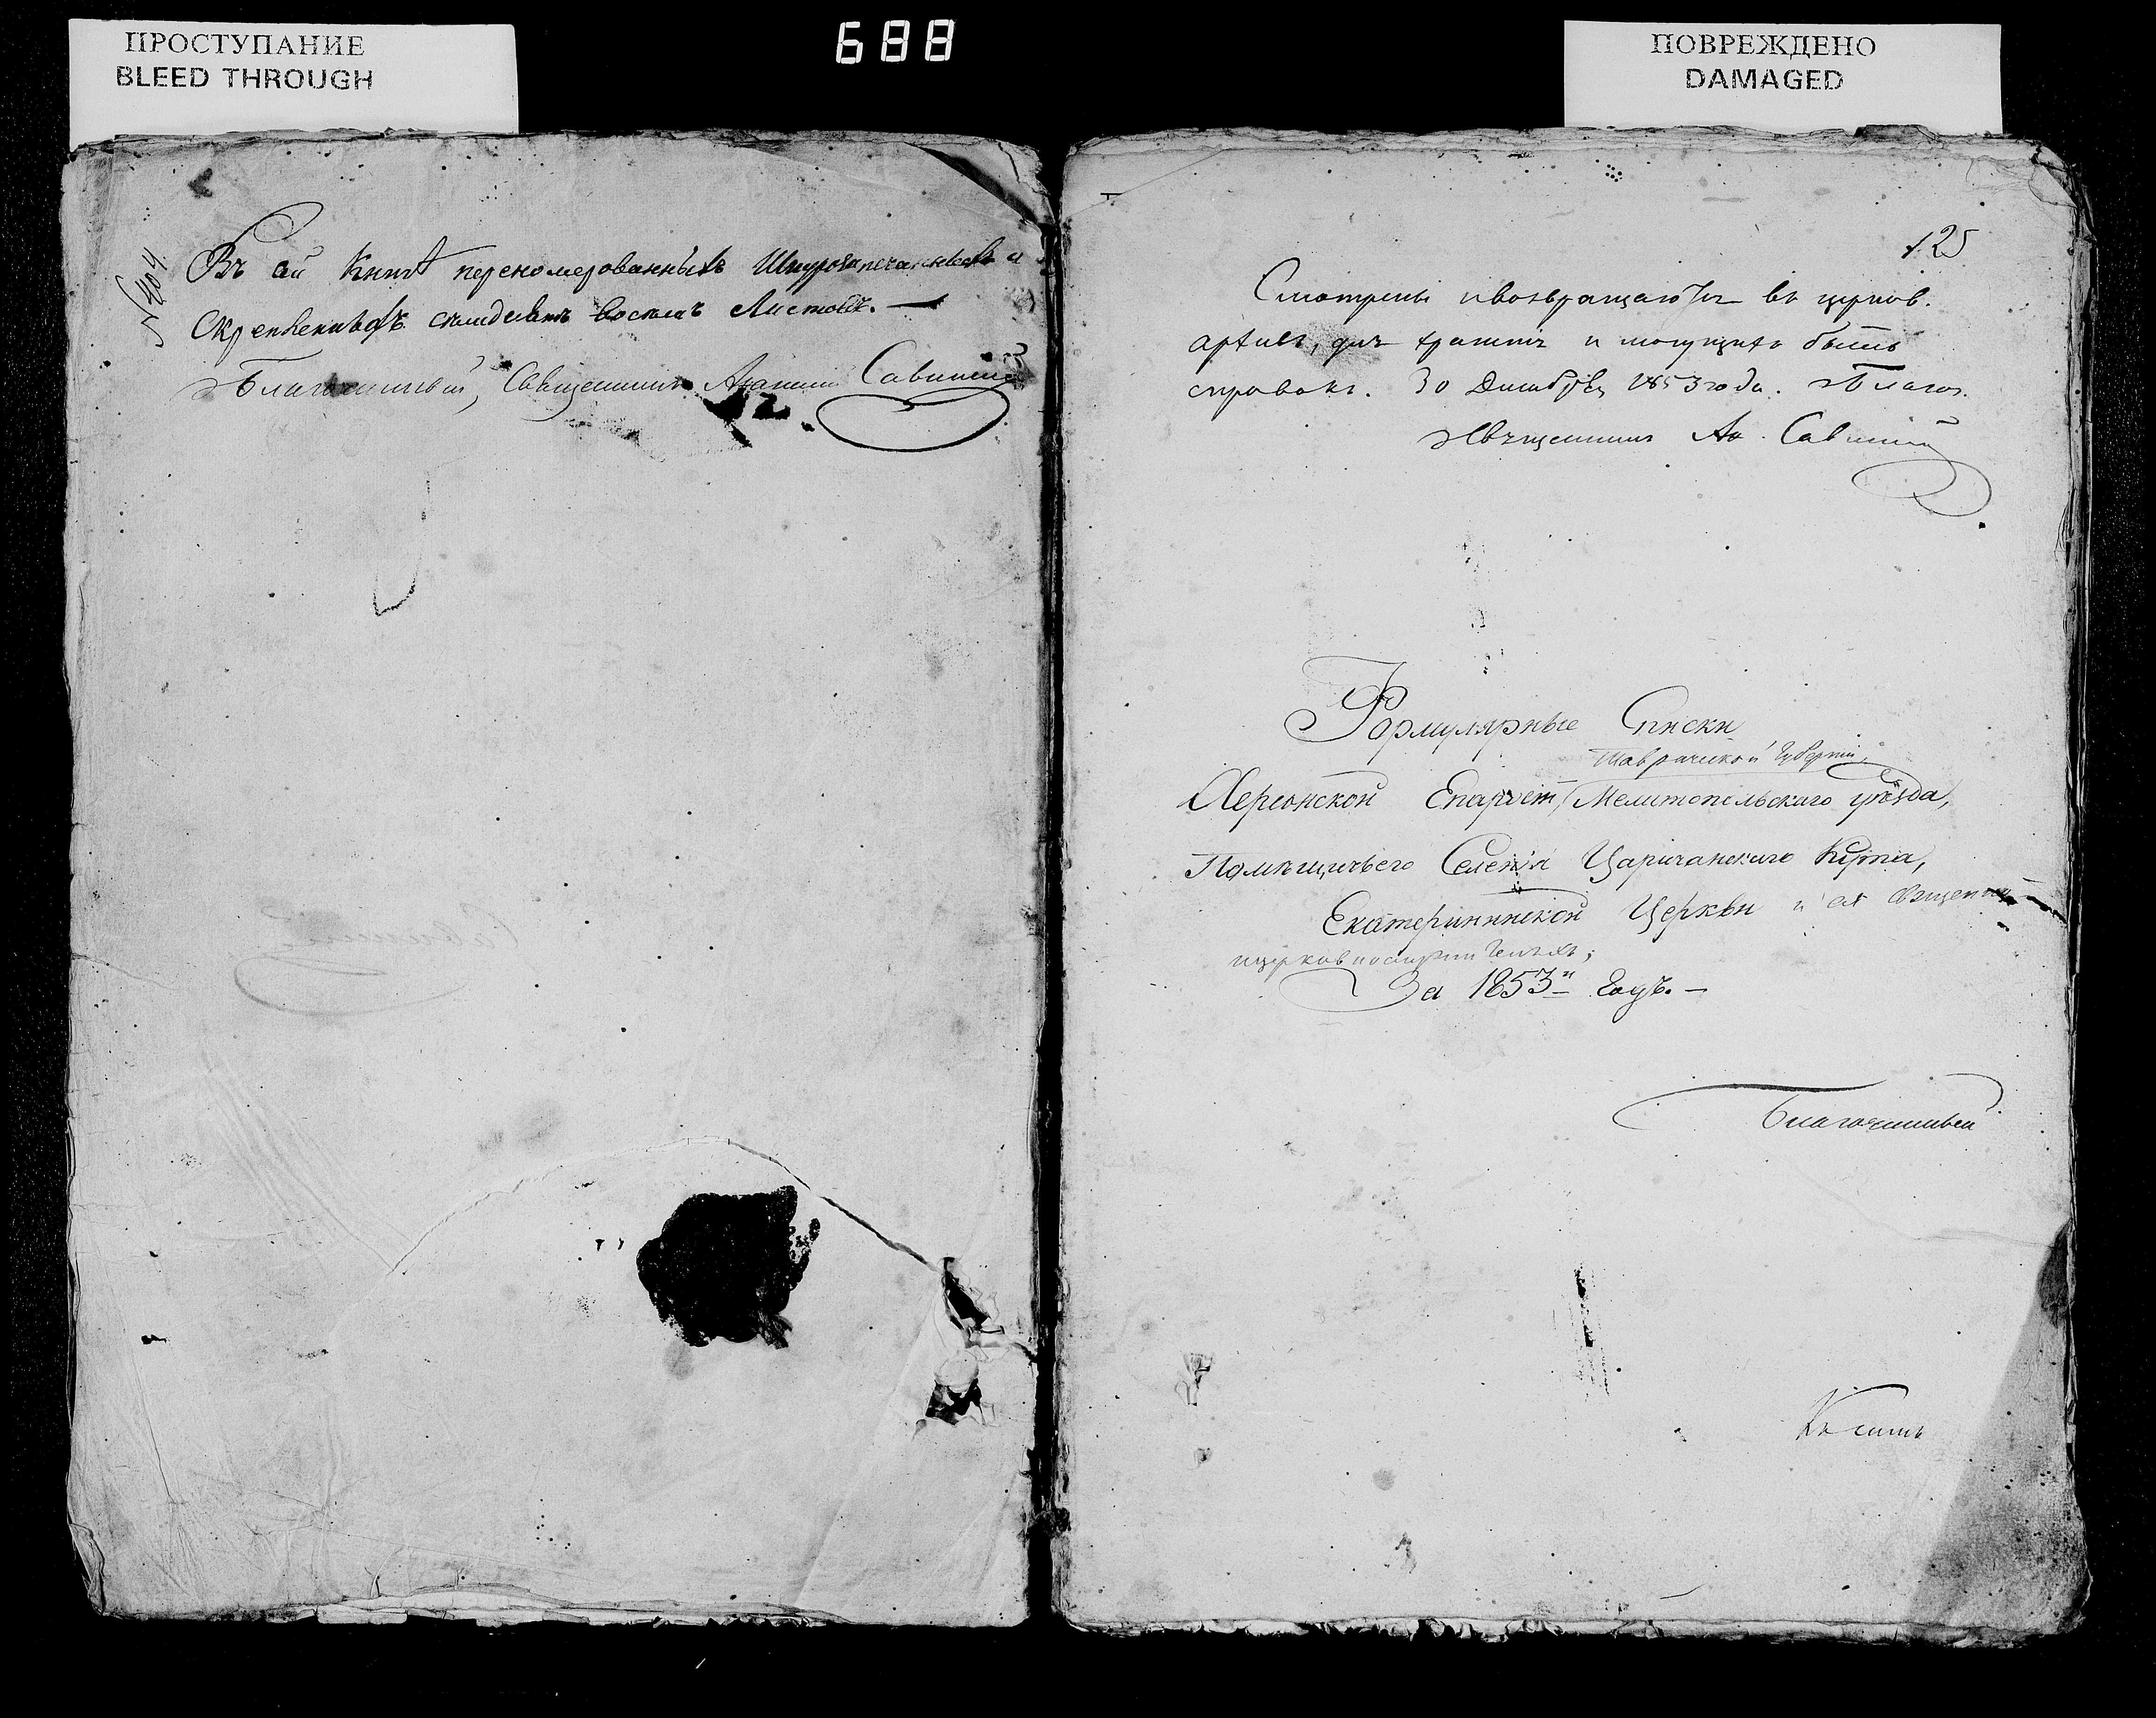 ПРОСТУПАНИЕ
BLEED THROUGH
688
ПОВРЕЖДЕНО
DAMAGED
№ 404
Въ сей Книгѣ переномерованныхъ Шнурозапечатанныхъ и
Скрепленныхъ семьдесятъ восемь Листовъ. —
Благочинный, Священникъ Ананій Савинскій
125
Смотрены и возвращаются въ церков.
архивъ, для храненія и могущихъ быть
справокъ. 30 Декабря 1853 года. Благоч.
Священникъ Ан. Савинскій
Формулярные Списки
Таврической Губерніи,
Херсонской Епархіи, Мелитопольскаго уѣзда,
Помѣщичьего Селенія Царичанскаго Кута,
Екатерининской Церкви и ея священно
и церковнослужителяхъ;
За 1853й Годъ. —
Благочинный
Къ симъ